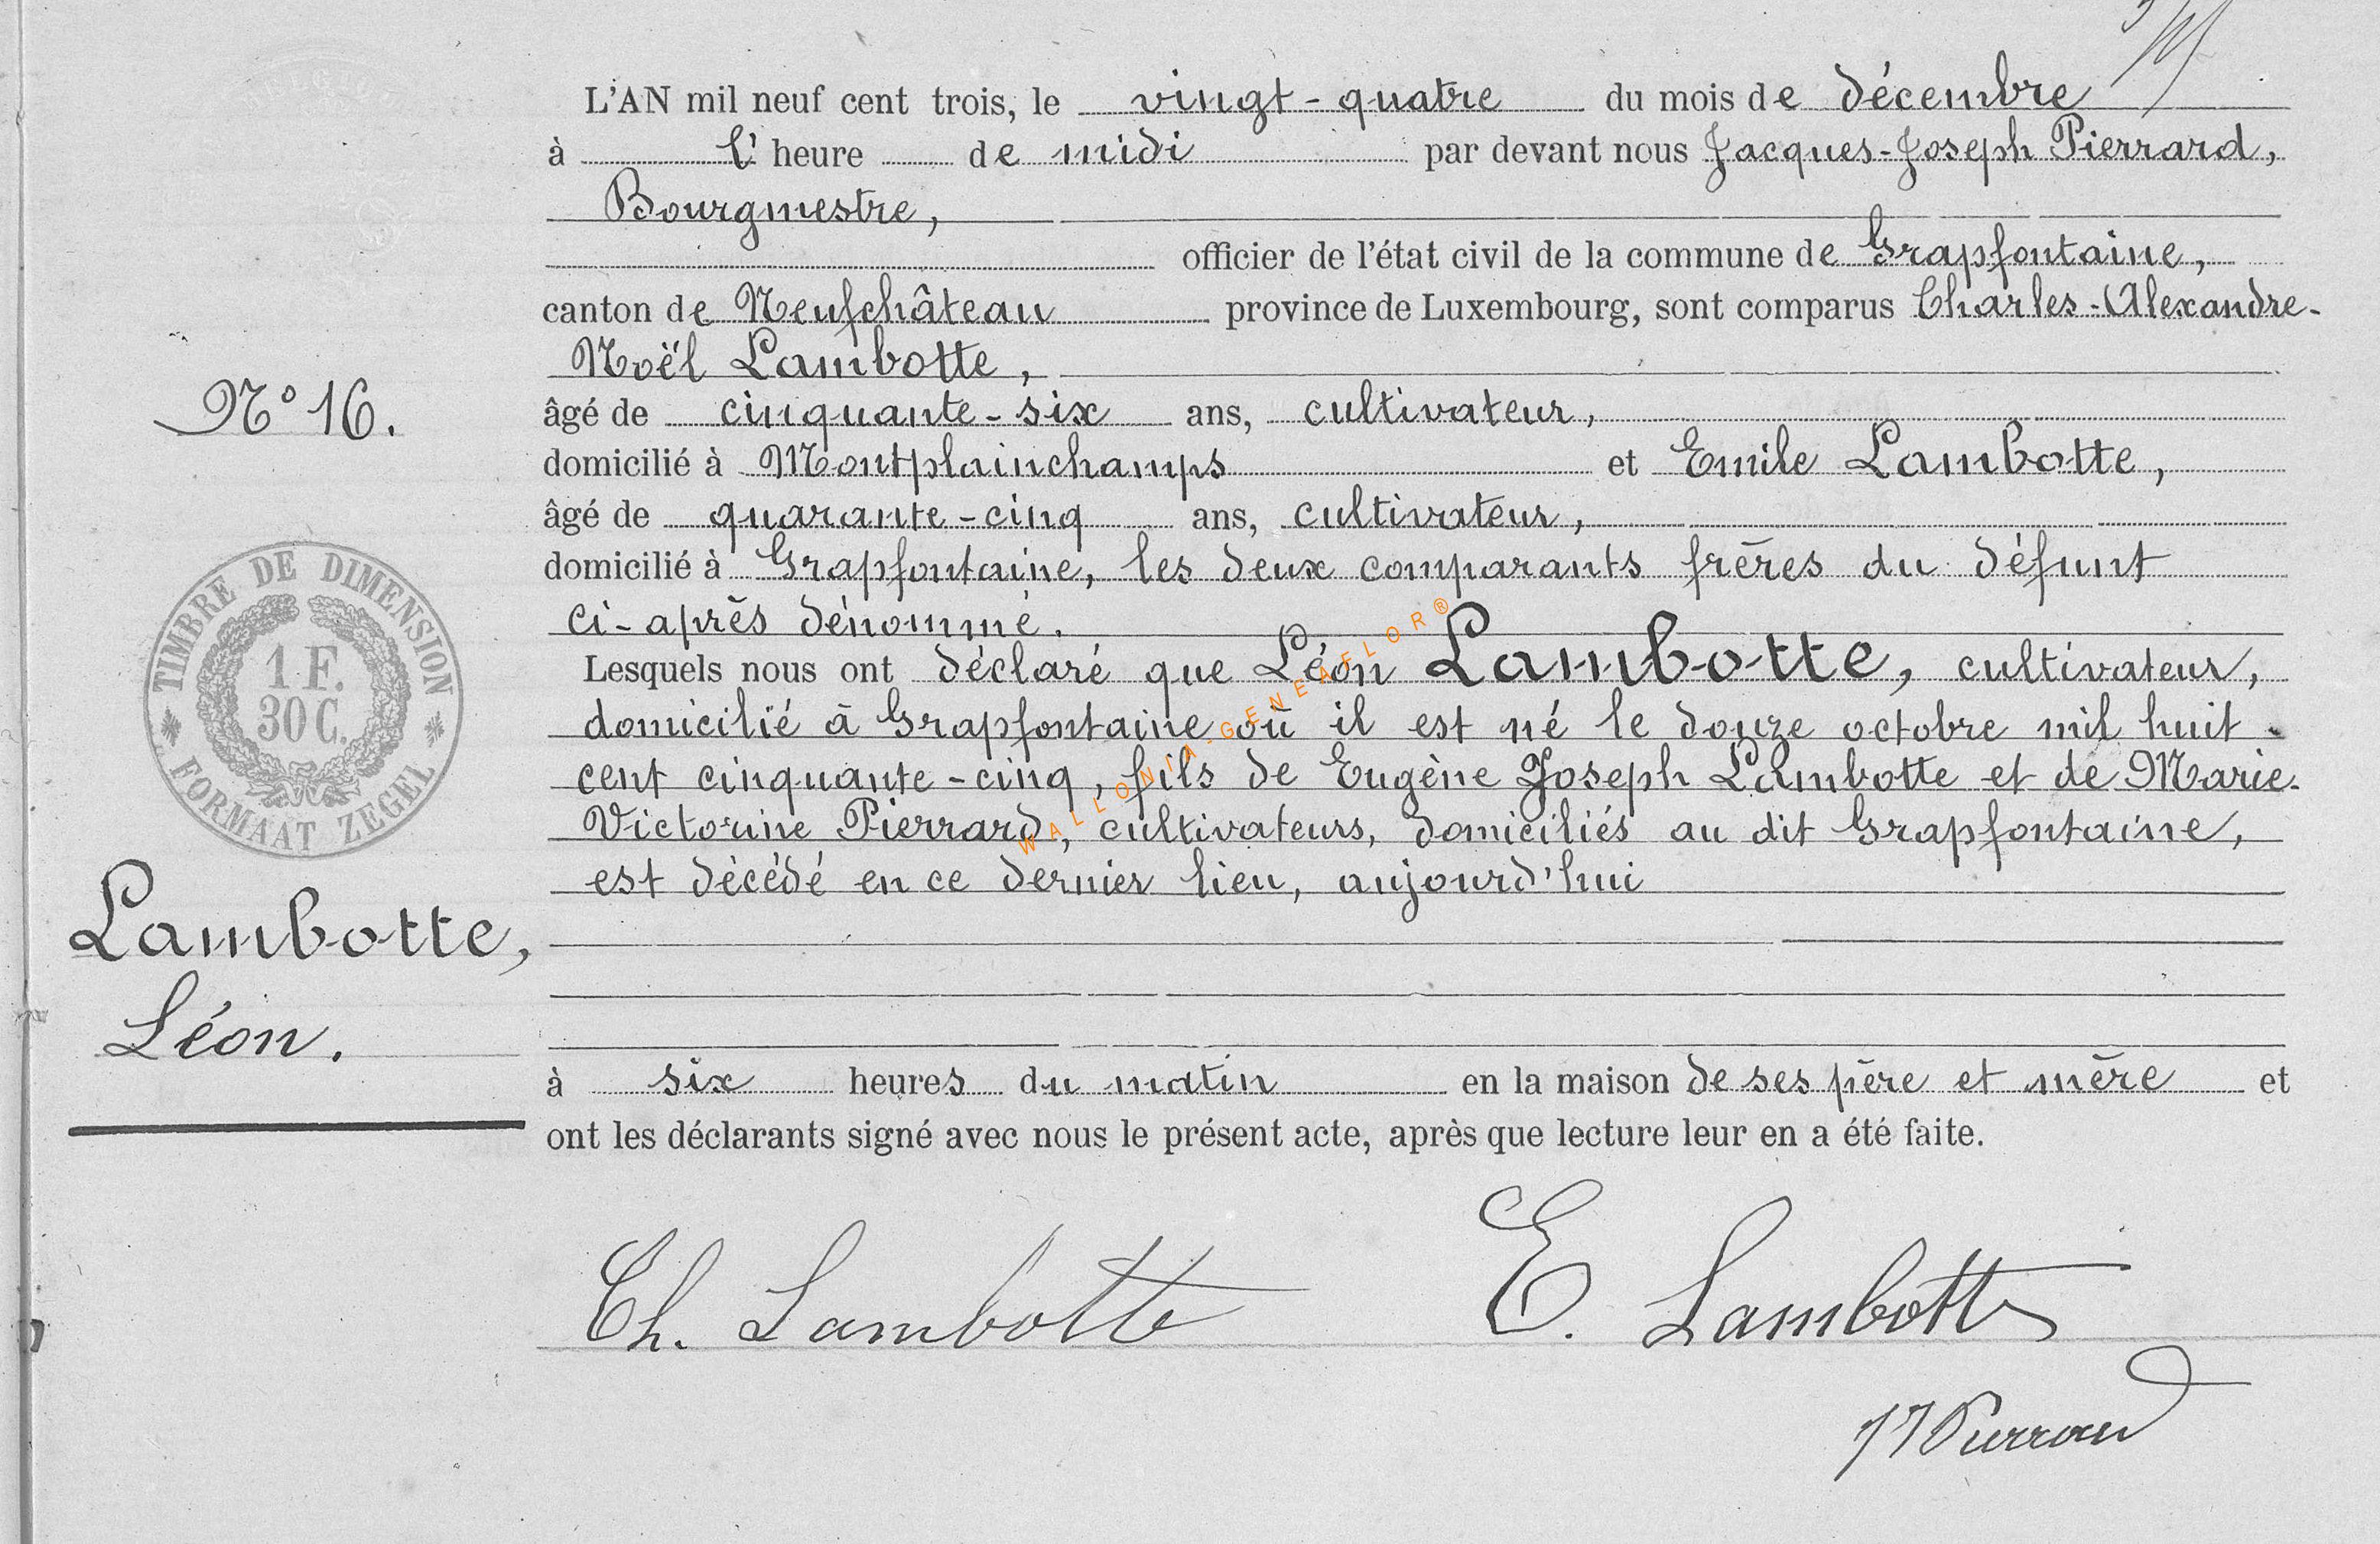 L'AN mil neuf cent trois, le vingt-quatre du mois de décembre
à l' heure de midi par devant nous Jacques-Joseph Pierrard,
Bourgmestre,
officier de l'état civil de la commune de Grapfontaine,
canton de Neufchâteau province de Luxembourg, sont comparus Charles-Alexandre-
Noël Lambotte,
N° 16.
âgé de cinquante-six ans, cultivateur,
domicilié à Montplainchamps et Emile Lambotte,
âgé de quarante-cinq ans, cultivateur,
domicilié à Grapfontaine, les deux comparants frères du défunt
ci-après dénommé.
TIMBRE DE DIMENSION
1 F.
30 C.
FORMAAT ZEGEL
WALLONIA-GENEAFLOR®
Lesquels nous ont déclaré que Léon Lambotte, cultivateur,
domicilié à Grapfontaine où il est né le douze octobre mil huit
cent cinquante-cinq, fils de Eugène Joseph Lambotte et de Marie-
Victorine Pierrard, cultivateurs, domiciliés au dit Grapfontaine,
est décédé en ce dernier lieu, aujourd'hui
Lambotte,
Léon.
à six heures du matin en la maison de ses père et mère et
ont les déclarants signé avec nous le présent acte, après que lecture leur en a été faite.
Ch. Lambotte E. Lambotte
JJ Pierrard